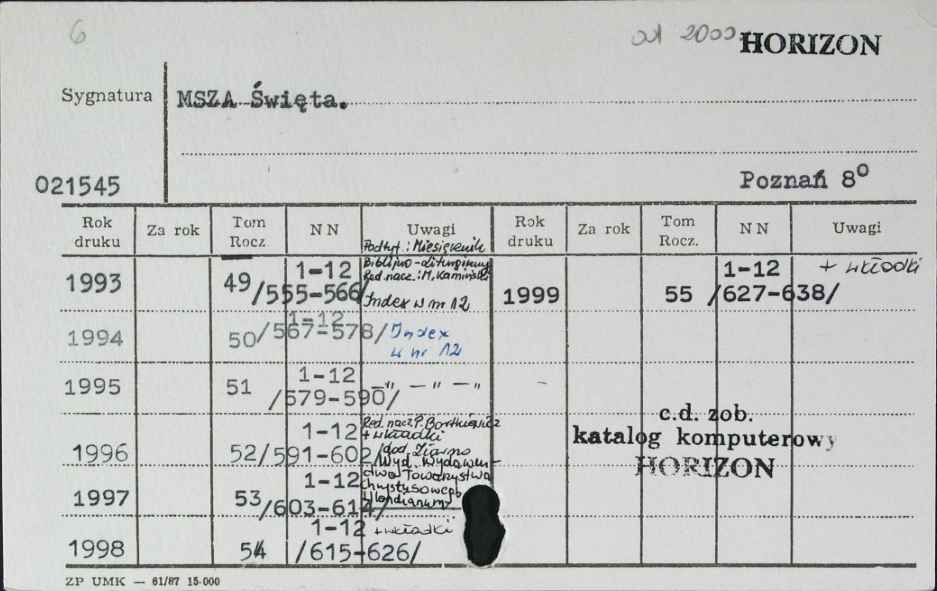 6
od 2000 HORIZON
Sygnatura
MSZA Święta.
021545
Poznań 8°
Rok druku Za rok Tom Rocz. N N Uwagi Rok druku Za rok Tom Rocz. N N Uwagi
Podtyt.: Miesięcznik
Biblijno-liturgiczny
Red. nacz.: M. Kamiński
1993 49 1-12 /555-566/ Index w nr 12
1999 55 1-12 /627-638/ + wkładki
1994 50 1-12 /567-578/ Index
w nr 12
1995 51 1-12 /579-590/ —"— —"— —"
Red. nacz. P. Bortkiewicz
+ wkładki
1996 52 1-12 /591-602/ dod. Ziarno
Wyd. Wydawni-
ctwo Towarzystwa
Chrystusowego
Hlondianum
1997 53 1-12 /603-614/
1998 54 1-12 /615-626/ + wkładki
c.d. zob.
katalog komputerowy
HORIZON
ZP UMK — 61/87 15·000